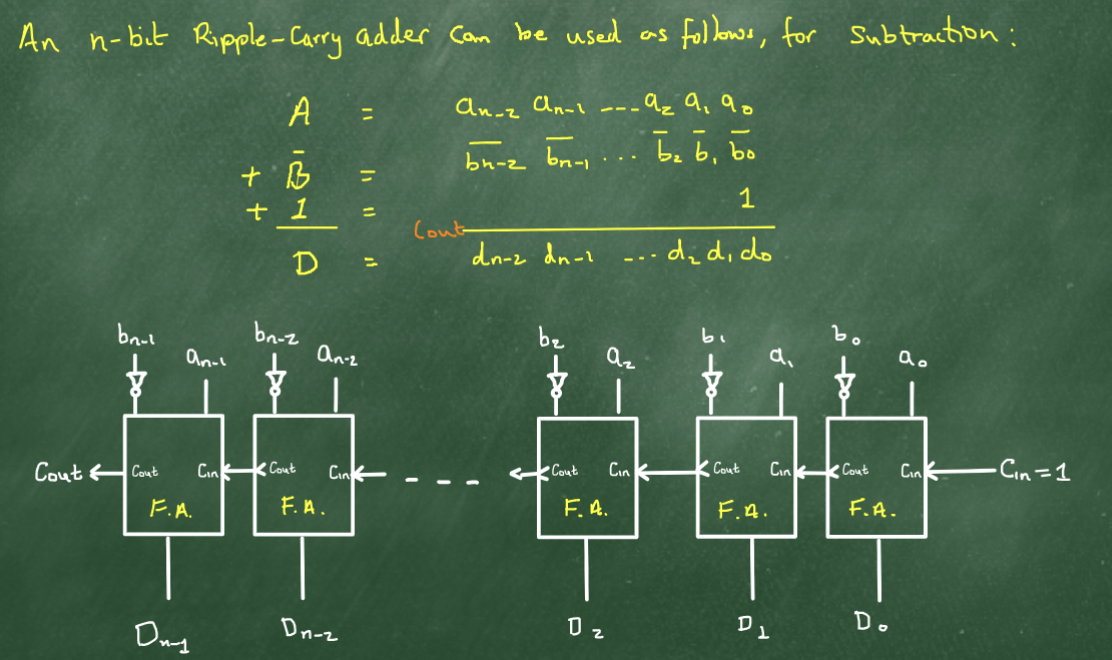 An n-bit Ripple-Carry adder can be used as follows, for Subtraction:
A = an-2 an-1 ---- a2 a1 a0
+ B̅ = b̅n-2 b̅n-1 ... b̅2 b̅1 b̅0
+ 1 = 1
Cout
D = dn-2 dn-1 --- d2 d1 d0
bn-1 an-1 bn-2 an-2 b2 a2 b1 a1 b0 a0
Cout Cout Cin Cout Cin - - - - Cout Cin Cout Cin Cout Cin Cin = 1
F.A. F.A. F.A. F.A. F.A.
Dn-1 Dn-2 D2 D1 D0